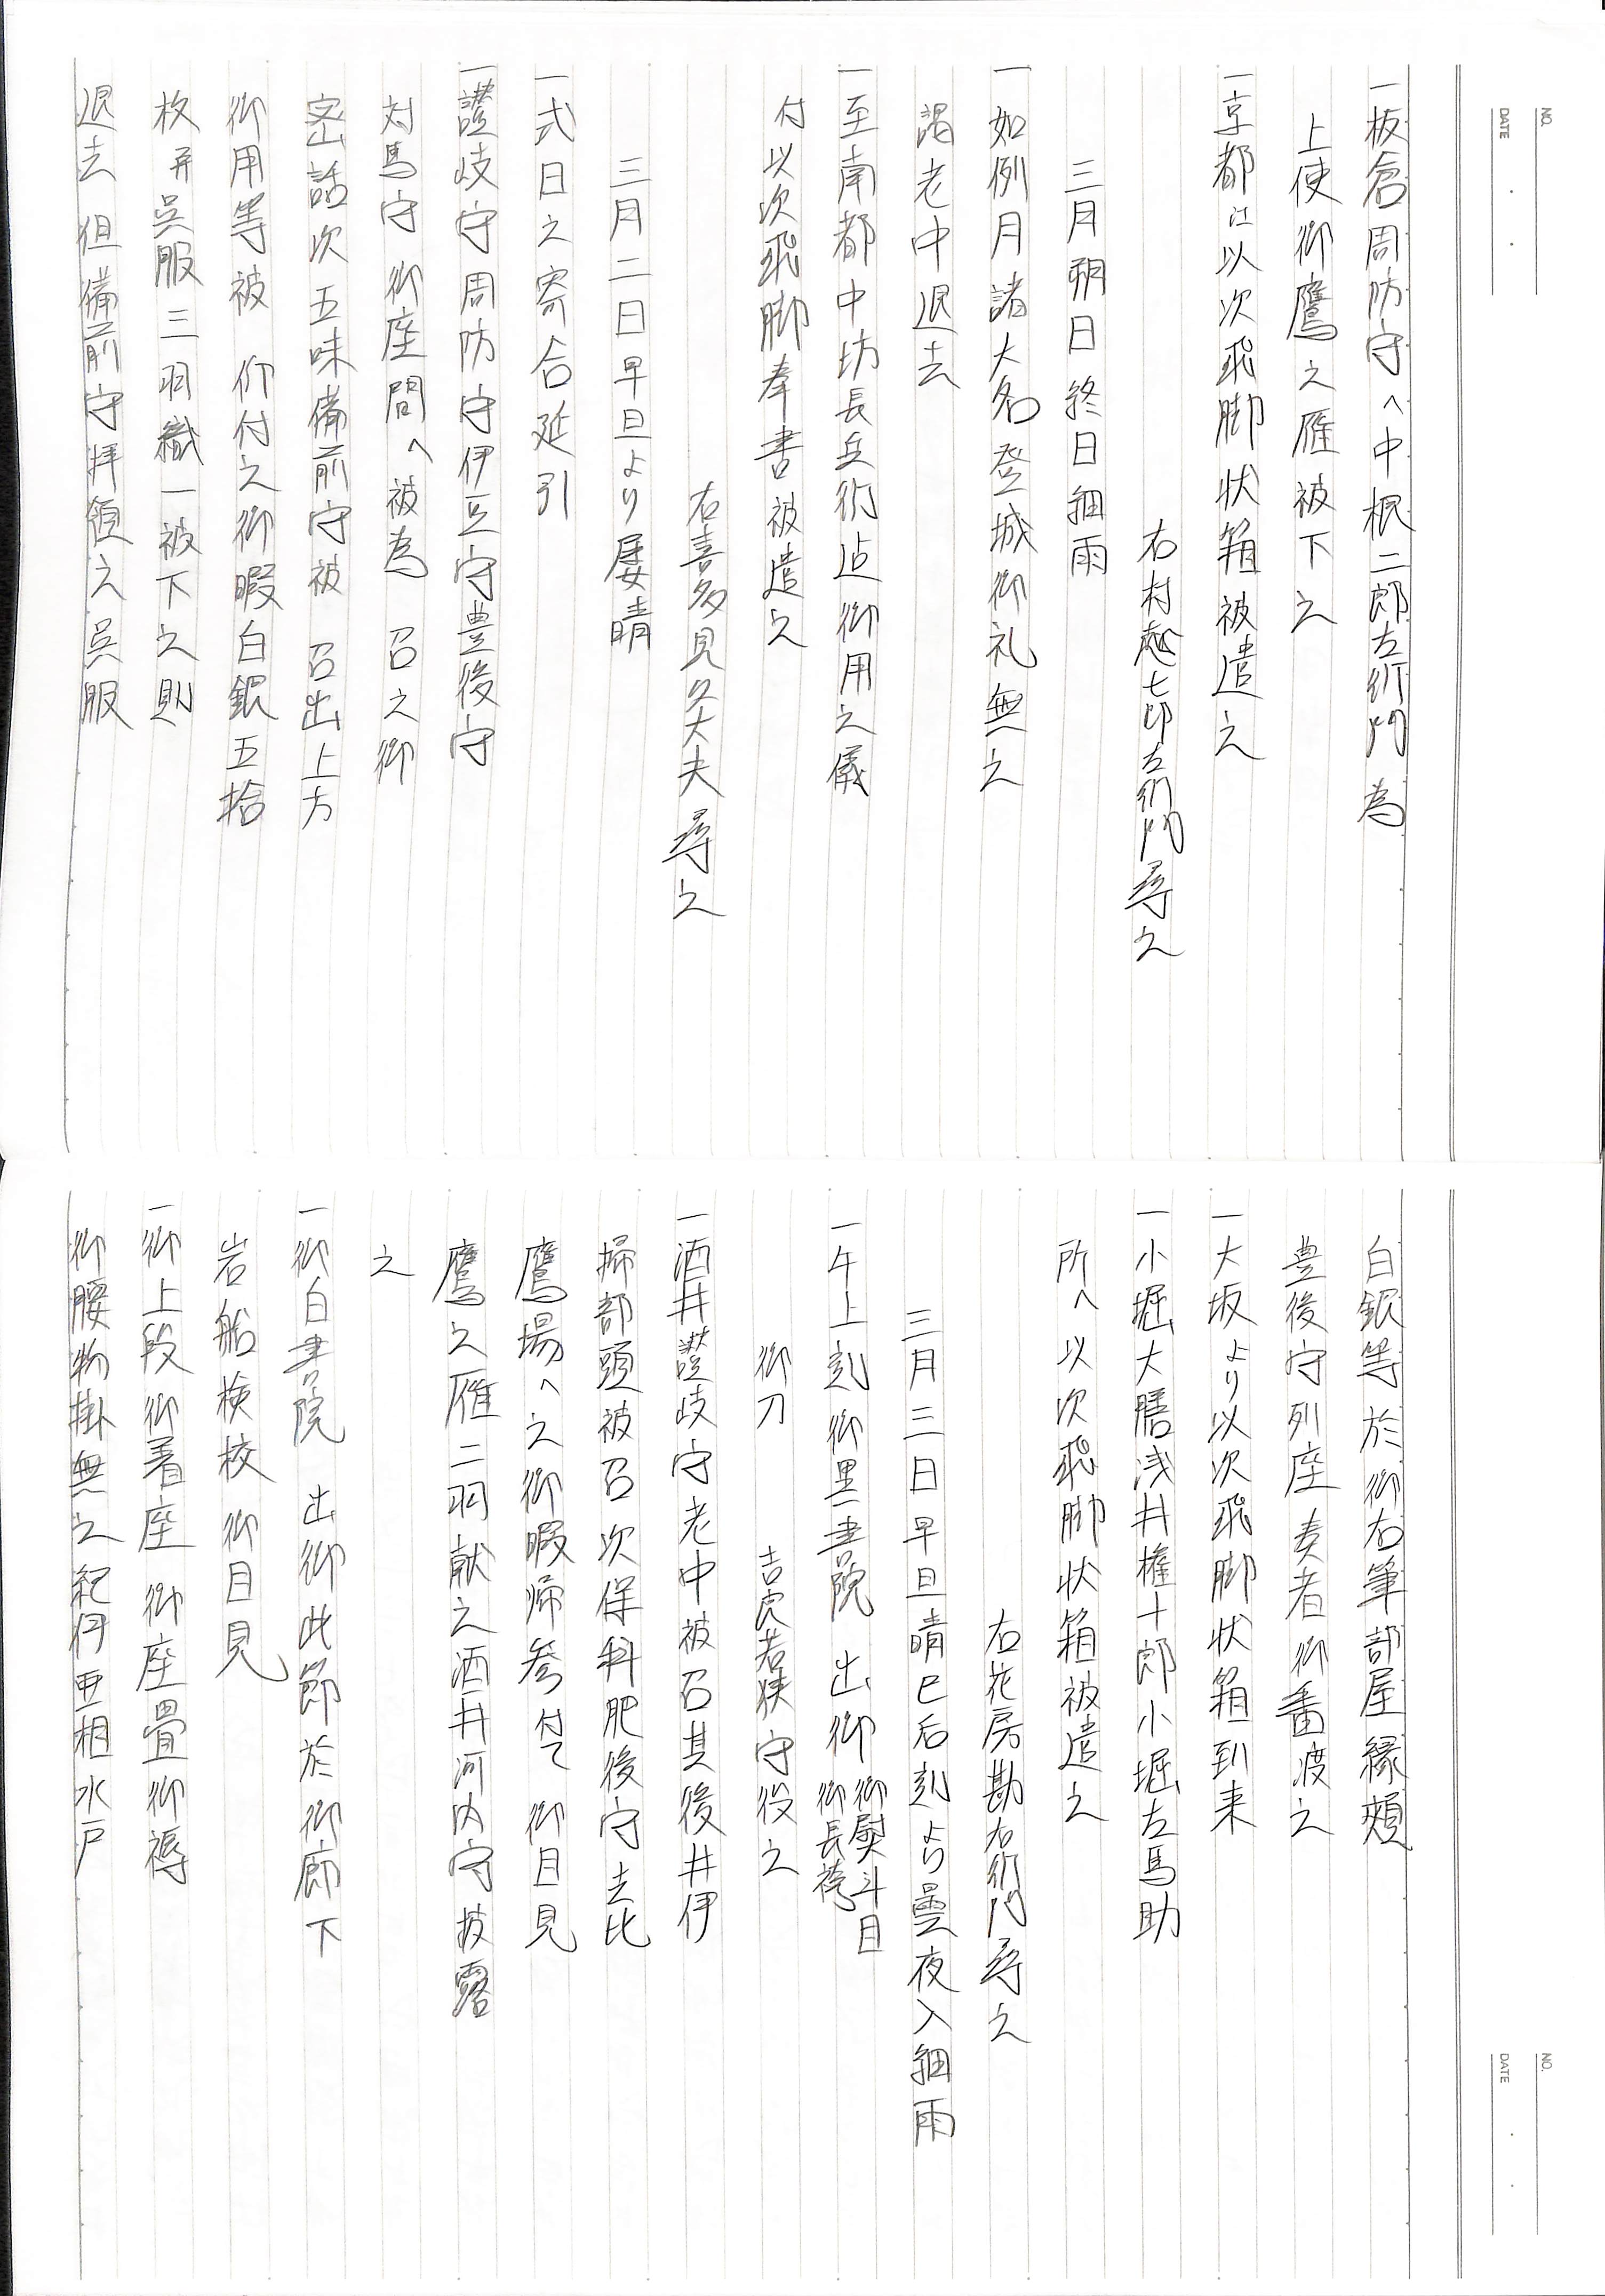 一板倉周防守へ中根二郎左衛門為
上使御鷹之雁被下之
一京都江以次飛脚状箱被遣之
右村越七郎左衛門尋之
三月朔日終日細雨
一如例月諸大名登城御礼無之
謁老中退去
一至南都中坊長兵衛迠御用之儀
付以次飛脚奉書被遣之
右喜多見久大夫尋之
三月二日早旦より屡晴
一式日之寄合延引
一讃岐守周防守伊豆守豊後守
対馬守御座間へ被為 召之御
密話次五味備前守被 召出上方
御用等被 仰付之御暇白銀五拾
枚并呉服三羽織一被下之則
退去但備前守拝領之呉服
白銀等於御右筆部屋縁頬
豊後守列座奏者御番渡之
一大坂より以次飛脚状箱到来
一小堀大膳浅井権十郎小堀左馬助
所へ以次飛脚状箱被遣之
右花房勘右衛門尋之
三月三日早旦晴巳后刻より曇夜入細雨
一午上刻御黒書院 出御 御熨斗目 御長袴
御刀 吉良若狭守役之
一酒井讃岐守老中被召其後井伊
掃部頭被召次保科肥後守去比
鷹場へ之御暇帰参付て 御目見
鷹之雁二羽献之酒井河内守披露
之
一御白書院 出御此節於御廊下
岩船検校御目見
一御上段御着座 御座畳御褥
御腰物掛無之紀伊亜相水戸